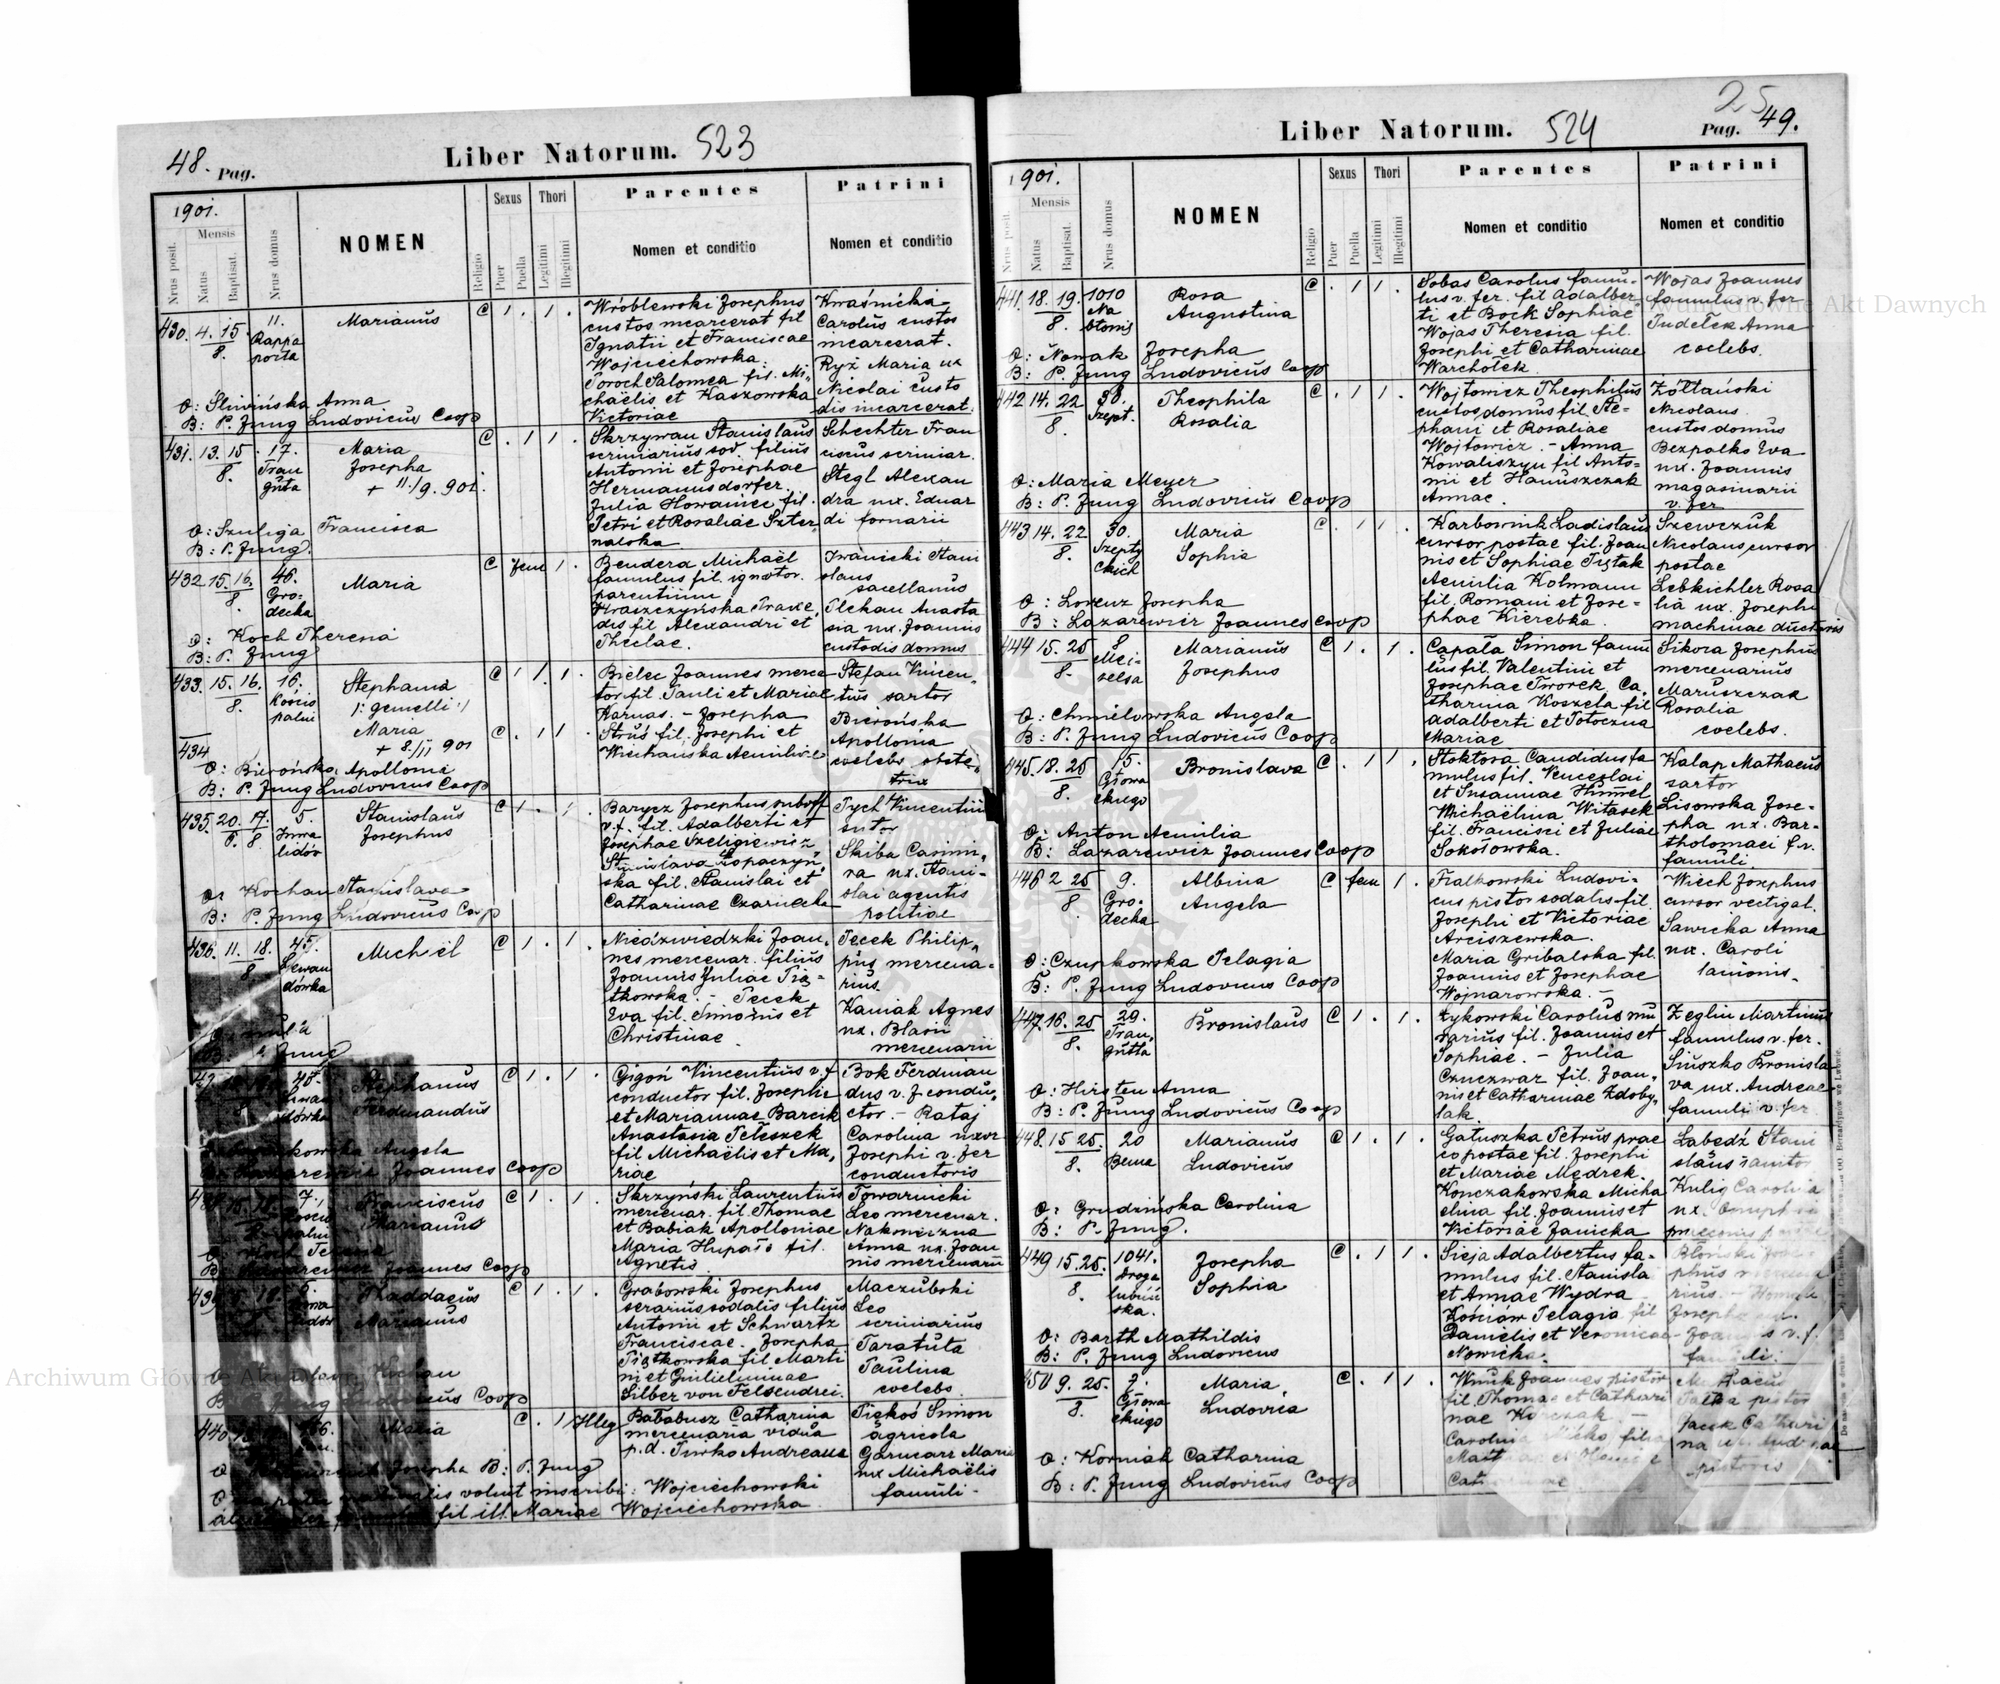 48. Pag.
Liber Natorum. 523
1901.
Nrus posit.
Mensis
Natus
Baptisat.
Nrus domus
NOMEN
Religio
Sexus
Puer
Puella
Thori
Legitimi
Illegitimi
Parentes
Nomen et conditio
Patrini
Nomen et conditio
430. 4. 15/8. 11. Rappa porta
Marianus
C 1 . 1 .
Wróblewski Josephus
custos incarcerat fil
Ignatii et Franciscae
Wojciechowska.
Poroch Salomea fil. Mi-
chaelis et Kaszowska
Victoriae
Kwaśnicka
Carolus custos
incarcerat.
Ryż Maria ux
Nicolai custo
dis incarcerat.
O: Śliwińska Anna
B: P. Jung Ludovicus Coop
431. 13. 15/8. 17. Trau guta
Maria
Josepha
+ 11./9. 901.
C . 1 1 .
Skrzywan Stanislaus
scriniarius sod. filius
Antonii et Josephae
Hermannsdorfer.
Julia Howaniec fil.
Petri et Rosaliae Szter
naloka
Schechter Fran
ciscus scriniar.
Stegl Alexan
dra ux. Eduar
di fornarii
O: Szuliga Francisca
B: P. Jung.
432 15. 16./8 46. Gro- decka
Maria
C fem 1 .
Bendera Michaël
famulus fil. ignotor.
parentium
Kraszczyńska Praxe,
dis fil Alexandri et
Theclae.
Iwanicki Stani
slaus
sacellanus
Plekan Anasta
sia ux. Joannis
custodis domus
O: Koch Theresia
B: P. Jung
433. 15. 16./8. 16. Kościs palni
Stephania
/: gemelli :/
Maria
+ 8/II 901
C 1 1 . 1 .
C . 1 1 .
Bielec Joannes merce
tor fil Pauli et Mariae
Karnas. - Josepha
Struś fil. Josephi et
Wiechańska Aemiliae
Stefan Vincen,
tius sartor
Bierońska
Apollonia
coelebs obste,
trix
434
O: Bierońska Apollonia
B: P. Jung Ludovicus Coop
435. 20. 17./8 5. Inwa lidów
Stanislaus
Josephus
C 1 . 1 .
Barycz Josephus suboff
v. f. fil. Adalberti et
Josephae Szeligiewicz
Stanislava Łopaczyń,
ska fil. Stanislai et
Catharinae Czarnecka
Tych Vincentius
sutor
Skiba Casimi,
ra ux. Stani-
slai agentis
politiae
Kochan Stanislava
B: P. Jung Ludovicus Coop
436. 11. 18./8 45. Lewan dówka
C 1 . 1 .
Niedzwiedzki Joan,
nes mercenar. filius
Joannis Juliae Pią-
tkowska. - Pecek
Eva fil. Simonis et
Christinae.
Pecek Philip,
pus mercena-
rius.
Kaniak Agnes
ux. Blasii
mercenarii
Jung
Stephanus
Ferdinandus
C 1 . 1 .
Gigoń Vincentius v. f
conductor fil. Josephi
et Mariannae Barcik
Anastasia Peleszek
fil Michaëlis et Ma,
riae
Bok Ferdinan
dus v. f. condu,
ctor. - Rataj
Carolina uxor
Josephi v. fer
conductoris
Angela
Joannes Coop
Franciscus
Marianus
C 1 . 1 .
Skrzyński Laurentius
mercenar. fil. Thomae
et Babiak Apolloniae
Maria Hupało fil.
Agnetis
Towarnicki
Leo mercenar.
Nakonieczna
Anna ux. Joan
nis mercenarii
Joannes Coop
Thaddaeus
Marianus
C 1 . 1 .
Grabowski Josephus
serarius sodalis filius
Antonii et Schwartz
Franciscae. Josepha
Piątkowska fil. Marti
ni et Guilielminae
Silber von Felsendrei.
Maczubski
Leo
scriniarius
Taratuta
Paulina
coelebs.
Kochan
Ludovicus Coop
440.
Maria
C . 1 Illeg
Bałabusz Catharina
mercenaria vidua
p. d. Turko Andreana
Piękoś Simon
agricola
Garmarz Maria
ux Michaëlis
famuli.
Josepha B: P. Jung
pater naturalis voluit inscribi: Wojciechowski
fil ill. Mariae Wojciechowska
Liber Natorum. 524
25
Pag. 49.
1901.
Nrus posit.
Mensis
Natus
Baptisat.
Nrus domus
NOMEN
Religio
Sexus
Puer
Puella
Thori
Legitimi
Illegitimi
Parentes
Nomen et conditio
Patrini
Nomen et conditio
441. 18. 19./8. 1010 Na błonie
Rosa
Augustina
C . 1 1 .
Sobas Carolus famu-
lus v. fer. fil Adalber
ti et Bock Sophiae
Wojas Theresia fil.
Josephi et Catharinae
Warchołek.
Wojas Joannes
famulus v. fer
Pudełek Anna
coelebs.
O: Nowak Josepha
B: P. Jung Ludovicus Coop
442 14. 22/8. 38. Szept.
Theophila
Rosalia
C . 1 1 .
Wojtowicz Theophilus
custos domus fil. Ste-
phani et Rosaliae
Wojtowicz. - Anna
Kowaliszyn fil Anto-
nii et Hanuszczak
Annae.
Żółtański
Nicolaus
custos domus
Bezpalko Eva
ux. Joannis
magasinarii
v. fer
O: Maria Meyer
B: P. Jung Ludovicus Coop
443 14. 22/8. 30. Szepty ckich
Maria
Sophia
C . 1 1 .
Karbownik Ladislaus
cursor postae fil. Joan
nis et Sophiae Piątak
Aemilia Kolmann
fil. Romani et Jose-
phae Kierebka.
Szewczuk
Nicolaus cursor
postae
Lebkichler Rosa
lia ux. Josephi
machinae ductoris
O: Lorenz Josepha
B: Lazarewicz Joannes Coop
444 15. 25/8. 8 Mei- selsa
Marianus
Josephus
C 1 . 1 .
Capala Simon famu
lus fil. Valentini et
Josephae Tworek. Ca,
tharina Koszela fil
Adalberti et Potoczna
Mariae
Sikora Josephus
mercenarius
Maruszczak
Rosalia
coelebs.
O: Chmielowska Angela
B: P. Jung Ludovicus Coop
445. 18. 25/8. 15. Głowa ckiego
Bronislava
C . 1 1 .
Stoktosa Candidus fa
mulus fil. Venceslai
et Susannae Hummel
Michaëlina Witasek
fil. Francisci et Juliae
Sokołowska.
Kalap Mathaeus
sartor
Lisowska Jose-
pha ux. Bar-
tholomaei f. v.
famuli
O: Anton Aemilia
B: Lazarewicz Joannes Coop
446 2 25/8 9. Gro- decka
Albina
Angela
C fem 1 .
Fialkowski Ludovi-
cus pistor sodalis fil.
Josephi et Victoriae
Arciszewska.
Maria Gribalska fil.
Joannis et Josephae
Wojnarowska. -
Wiech Josephus
cursor vectigal.
Sawicka Anna
ux. Caroli
lanionis-
O: Czupkowska Pelagia
B: P. Jung Ludovicus Coop
447 16. 25/8. 29. Trau, gutta
Bronislaus
C 1 . 1 .
Łykowski Carolus mu
rarius fil. Joannis et
Sophiae. - Julia
Czuczwar fil. Joan,
nis et Catharinae Zdoby,
lak
Zeglin Martinus
famulus v. fer.
Siuszko Bronisla
va ux. Andreae
famuli v. fer
O: Hirsten Anna
B: P. Jung Ludovicus Coop
448. 15 25./8. 20 Bema
Marianus
Ludovicus
C 1 . 1 .
Gałuszka Petrus prae
co postae fil. Josephi
et Mariae Mędrek.
Konczakowska Micha
elina fil. Joannis et
Victoriae Janicka
Łabędź Stani
slaus
Kulig Carolina
ux.
O: Grudzińska Carolina
B: P. Jung.
449 15. 25./8. 1041. Droga lubiń ska.
Josepha
Sophia
C . 1 1 .
Sieja Adalbertus fa-
mulus fil. Stanisla
et Annae Wydra
Kościów Pelagia fil
Danielis et Veronicae
Nowicka.
Błoński
Josepha
famuli.
O: Barth Mathildis
B: P. Jung Ludovicus
450 9. 25./8. 7. Głowa ckiego
Maria
Ludovica
C . 1 1 .
Wnuk Joannes pistor
fil. Thomae et Cathari
nae
Carolina filia
pistor
Jacek Cathari
na
pistoris
O: Korniak Catharina
B: P. Jung Ludovicus Coop
Archiwum Główne Akt Dawnych
Archiwum Główne Akt Dawnych